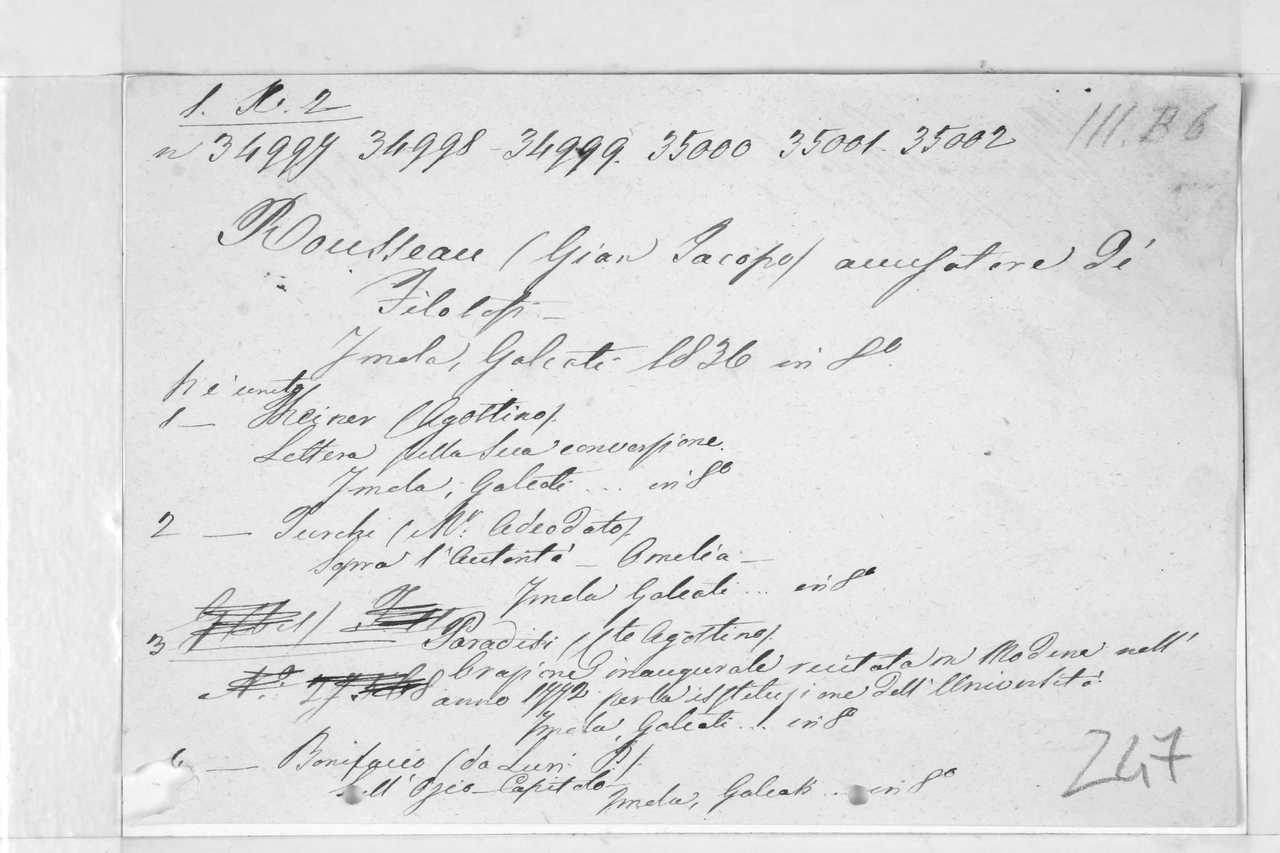 1. K. 2
n 34997 34998 - 34999. 35000 35001. 35002
III. B 6
Rousseau (Gian Jacopo) accusatore de'
Filosofi -
Imola, Galeati 1836 in 8º
vi è unito
1 - Theiner (Agostino)
Lettera sulla sua conversione.
Imola, Galeati ... in 8º
2 - Turchi (Mr. Adeodato)
sopra l'Autorità - Omelia -
Imola Galeati ... in 8º
3 Paradisi (Cte Agostino)
Orazione inaugurale recitata in Modena nell'
anno 1772 per la istituzione dell'Università
Imola, Galeati ... in 8º
- Bonifacio (da Luri P.)
sull'Ozio - Capitolo -
Imola, Galeati ... in 8º
247